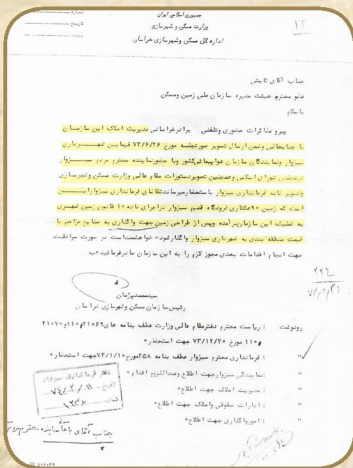 جمهوری اسلامی ایران
وزارت مسکن و شهرسازی
اداره کل مسکن و شهرسازی خراسان
شماره
تاریخ
۱۲
جناب آقای تابش
عضو محترم هیئت مدیره سازمان ملی زمین و مسکن
با سلام
پیرو مذاکرات حضوری و تلفنی برادر خراسانی مدیریت املاک این سازمان
با جنابعالی و ضمن ارسال تصویر صورتجلسه مورخ ۷۳/۶/۲۶ فیمابین شهرداری
سبزوار و نمایندگان سازمان هواپیمائی کشور و با حضور نماینده محترم مردم سبزوار
در مجلس شورای اسلامی و همچنین تصویر دستورات مقام عالی وزارت مسکن و شهرسازی
و تصویر نامه فرمانداری سبزوار باستحضار میرساند تقاضای فرمانداری سبزوار این
است که زمین ۹۰ هکتاری فرودگاه قدیم سبزوار در اجرای ماده ۱۰ قانون زمین شهری
به تملیک این سازمان درآمده و پس از طراحی زمین جهت واگذاری به
قیمت منطقه بندی به شهرداری سبزوار واگذار شود خواهشمند است در صورت موافقت
جهت انجام اقدامات بعدی مجوز لازم را به این سازمان صادر فرمائید
سید محمد پژمان
رئیس سازمان مسکن و شهرسازی خراسان
رونوشت :
ریاست محترم دفتر مقام عالی وزارت عطف بنامه های ۲۱۰۶۹/۱۱۰ و ۲۱۰۷۰
/۱۱۰ مورخ ۷۳/۱۲/۲۰ جهت استحضار
فرمانداری محترم سبزوار عطف بنامه ۲۵۸ مورخ ۷۴/۱/۱۰ جهت استحضار
نمایندگی سبزوار جهت اطلاع و عنداللزوم اقدام
مدیریت املاک جهت اطلاع
ادارات حقوقی و املاک جهت اطلاع
امور واگذاری جهت اطلاع
دفتر فرمانداری سبزوار